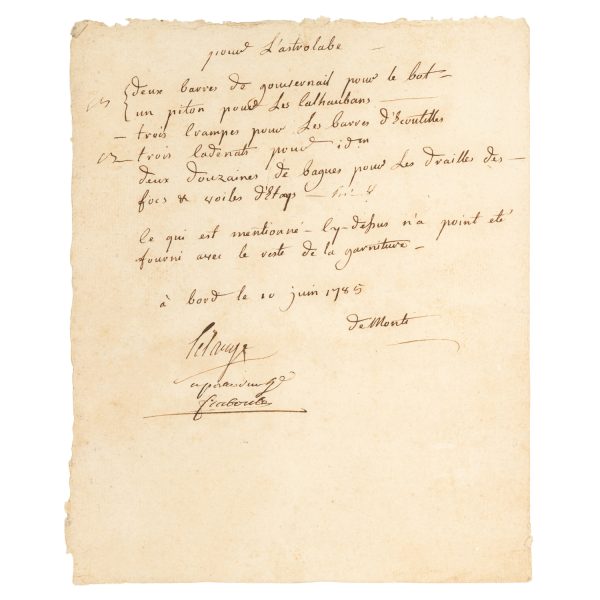 pour L'astrolabe
deux barres de gouvernail pour le bot -
un piton pour Les Calhaubans
- trois Crampes pour Les barres d'Ecoutilles
- trois Cadenats pour idm
deux douzaines de bagues pour Les drailles des -
focs & voiles d'Etays -
Ce qui est mentionné Cy-dessus n'a point eté
fourni avec le reste de la garniture -
à bord le 10 juin 1785
de Monti